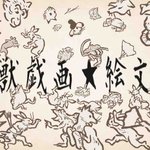 獣戯画★絵文